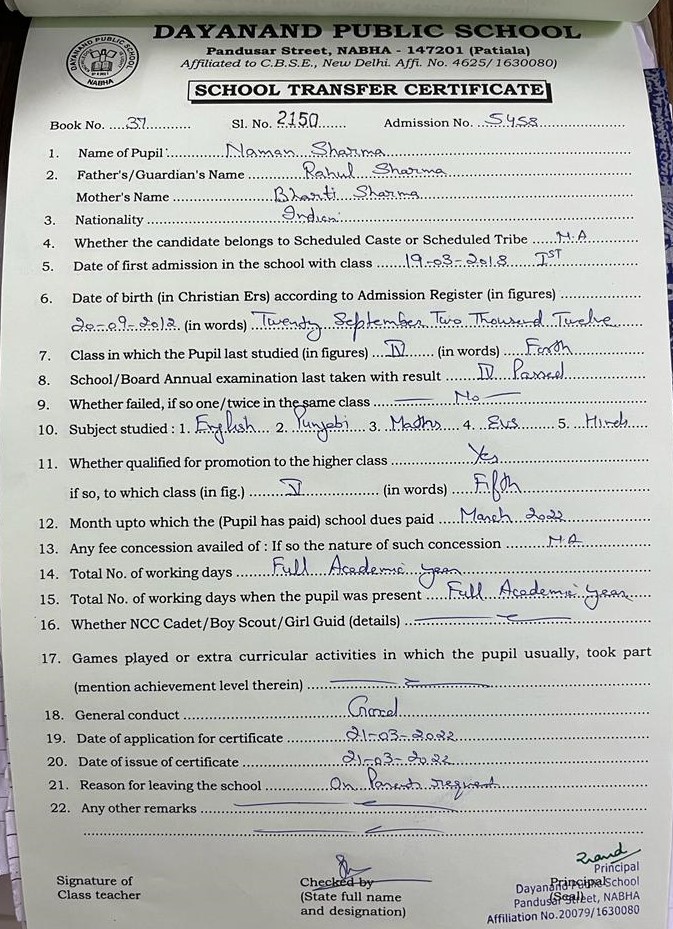 DAYANAND PUBLIC SCHOOL
Pandusar Street, NABHA - 147201 (Patiala)
Affiliated to C.B.S.E., New Delhi. Affi. No. 4625/1630080)
DAYANAND PUBLIC SCHOOL
NABHA
SCHOOL TRANSFER CERTIFICATE
Book No. ....37.......... Sl. No. 2150....... Admission No. ..5458..........
1. Name of Pupil : Naman Sharma
2. Father's/Guardian's Name Rahul Sharma
Mother's Name Bharti Sharma
3. Nationality Indian
4. Whether the candidate belongs to Scheduled Caste or Scheduled Tribe N.A
5. Date of first admission in the school with class 19-03-2018 IST
6. Date of birth (in Christian Ers) according to Admission Register (in figures)
20-09-2012 (in words) Twenty September Two Thousand Twelve
7. Class in which the Pupil last studied (in figures) IV (in words) Forth
8. School/Board Annual examination last taken with result IV Passed
9. Whether failed, if so one/twice in the same class — No —
10. Subject studied : 1. English 2. Punjabi 3. Maths 4. EVS 5. Hindi
11. Whether qualified for promotion to the higher class Yes
if so, to which class (in fig.) V (in words) Fifth
12. Month upto which the (Pupil has paid) school dues paid March 2022
13. Any fee concession availed of : If so the nature of such concession N.A
14. Total No. of working days Full Academic year
15. Total No. of working days when the pupil was present Full Academic year
16. Whether NCC Cadet/Boy Scout/Girl Guid (details)
17. Games played or extra curricular activities in which the pupil usually, took part
(mention achievement level therein)
18. General conduct Good
19. Date of application for certificate 21-03-2022
20. Date of issue of certificate 21-03-2022
21. Reason for leaving the school On Parents request
22. Any other remarks
Signature of
Class teacher
Checked by
(State full name
and designation)
Principal
(Seal)
Principal
Dayanand Public School
Pandusar Street, NABHA
Affiliation No.20079/1630080